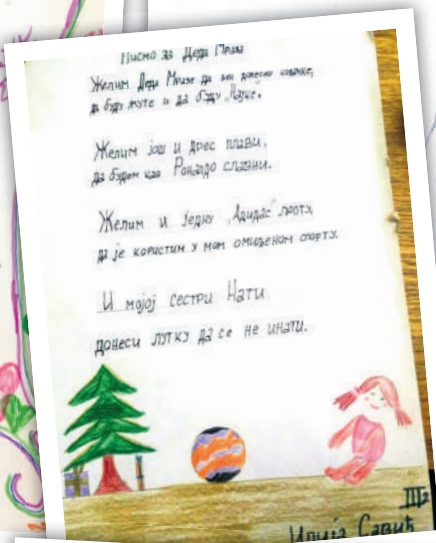 Писмо за Деда Мраза
Желим Деда Мразе да ми донесеш копачке,
да буду жуте и да буду „Најке“.
Желим још и дрес плави,
да будем као Роналдо славни.
Желим и једну „Адидас“ лопту,
да је користим у мом омиљеном спорту.
И мојој сестри Нати
донеси лутку да се не инати.
III2
Илија Савић